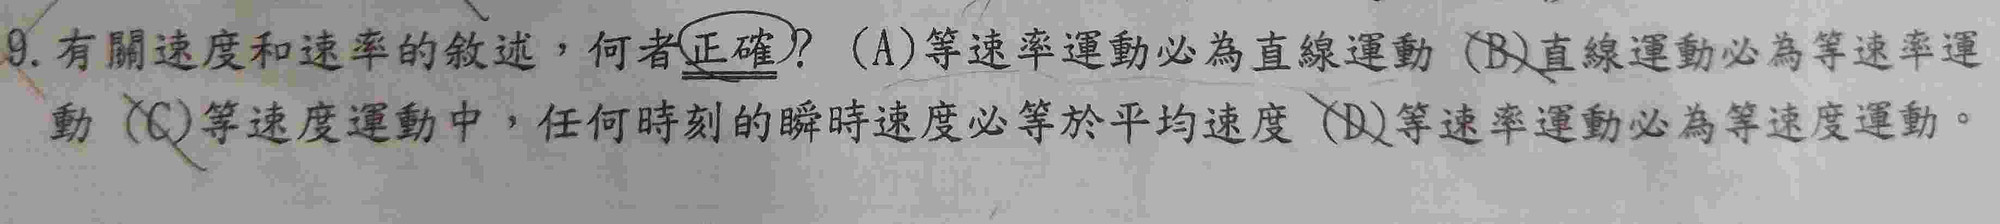 9. 有關速度和速率的敘述，何者正確？(A)等速率運動必為直線運動 (B)直線運動必為等速率運
動 (C)等速度運動中，任何時刻的瞬時速度必等於平均速度 (D)等速率運動必為等速度運動。